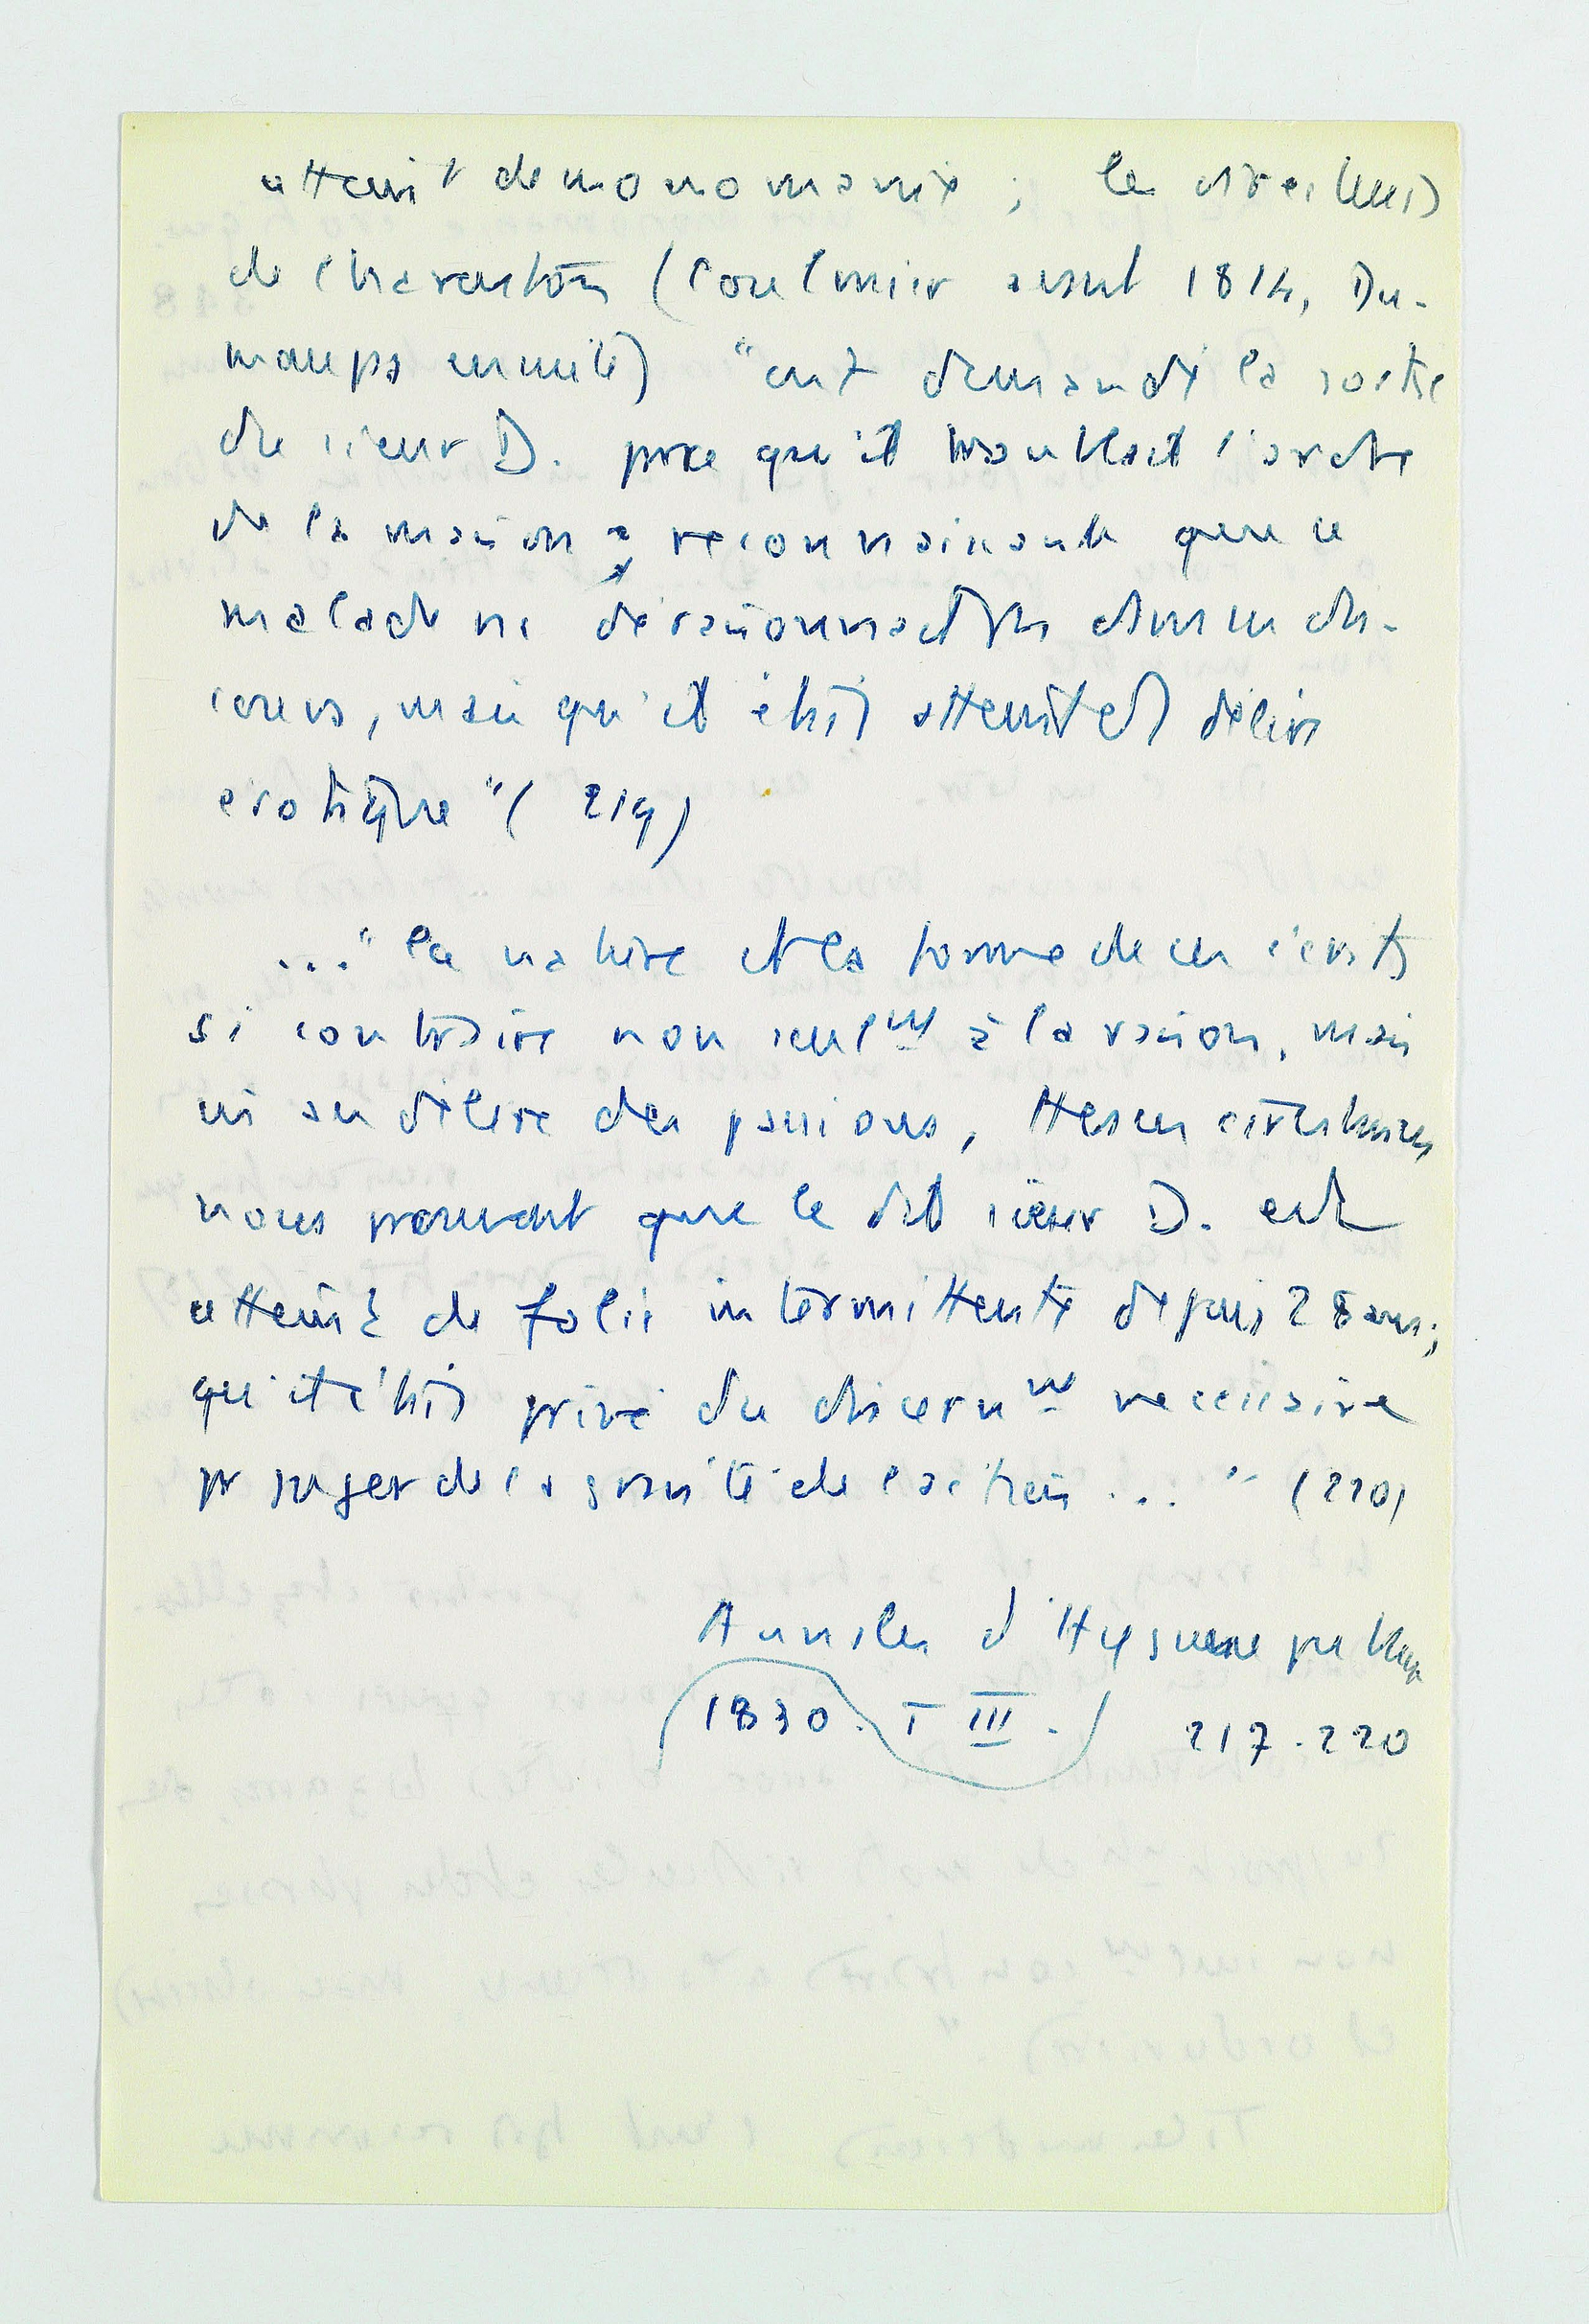 atteint de monomanie ; les directeurs
de Charenton (Coulmier avant 1814, Du-
maups ensuite) "ont demandé la sortie
du sieur D. parce qu'il troublait l'ordre
de la maison ; reconnaissant que ce
malade ne déraisonnait pas dans ses dis-
cours, mais qu'il était atteint de délire
érotique" (219)
..." la nature et la forme de ces écrits
si contraire non seulmt à la raison, mais
us au délire des passions, ttes ces circonstances
nous prouvent que le dit sieur D. est
atteint de folie intermittente depuis 28 ans ;
qu'il était privé du discernmt nécessaire
pr juger de la gravité de l'action ... " (220)
Annales d'Hygiene publique
1830. T III. 217-220